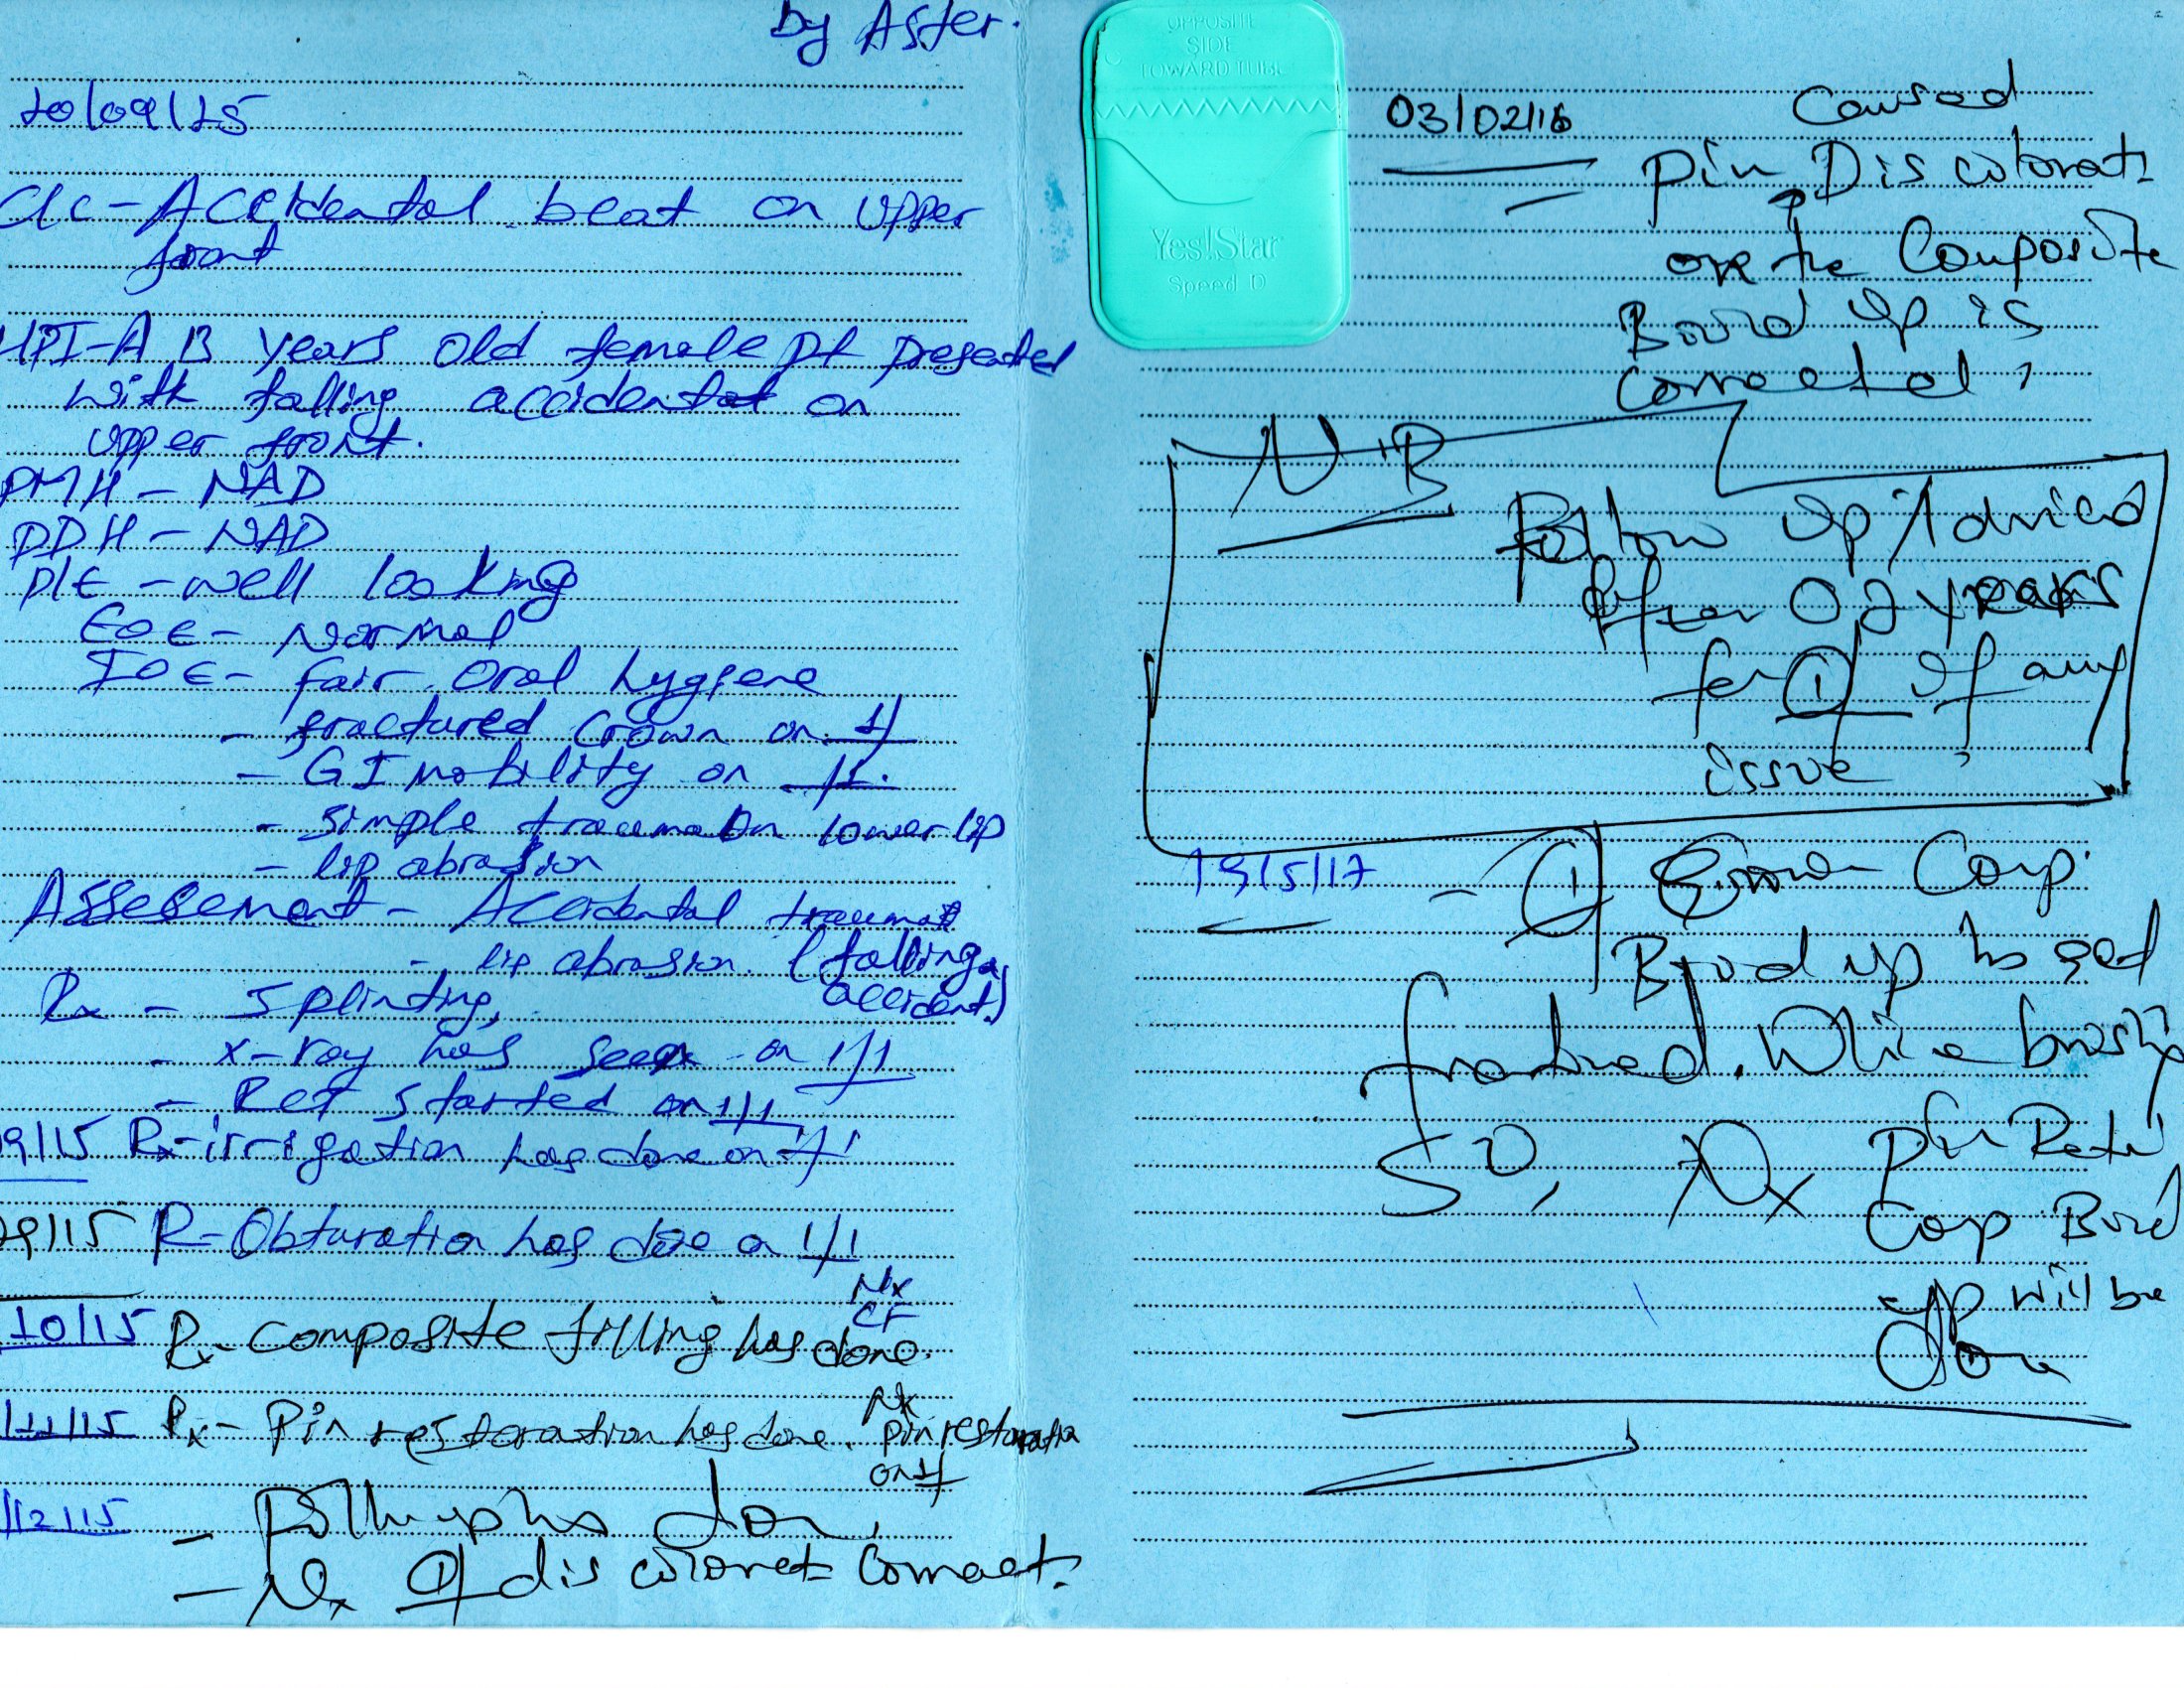 by Aster.
20/09/15
C/c - Accidental beat on upper
front
HPI - A 13 years old female pt presented
with falling accidental on
upper front.
PMH - NAD
PDH - NAD
P/E - well looking
EOE - Normal
IOE - fair oral hygiene
- fractured crown on 1/
- GI mobility on /1.
- simple trauma on lower lip
- lip abrasion
Assesement - Accidental trauma
- lip abrasion. (falling
accident.)
Rx - splinting,
- x-ray has seen on 1/1
- Rct started on 1/1
9/15 Rx - irrigation has done on 1/1
09/15 R - Obturation has done on 1/1
Nx
CF
10/15 Rx - composite filling has done.
Nx
/11/15 Rx - Pin restoration has done. pin restoration
on 1/
/12/15 - Polishing has don
- Nx 1/ discolorat correct.
OPPOSITE
SIDE
TOWARD TUBE
Yes!Star
Speed D
03/02/16 Caused
pin Discolorat
on the Composite
Buird up is
corrected,
N.B
Follow up Adviced
After 02 years
for 1/ If any
issue,
19/5/17 - 1/ Crown Comp.
Buid up has get
fractured. While brushing
So, Nx Pin Reten
Comp Buid
up will be
don